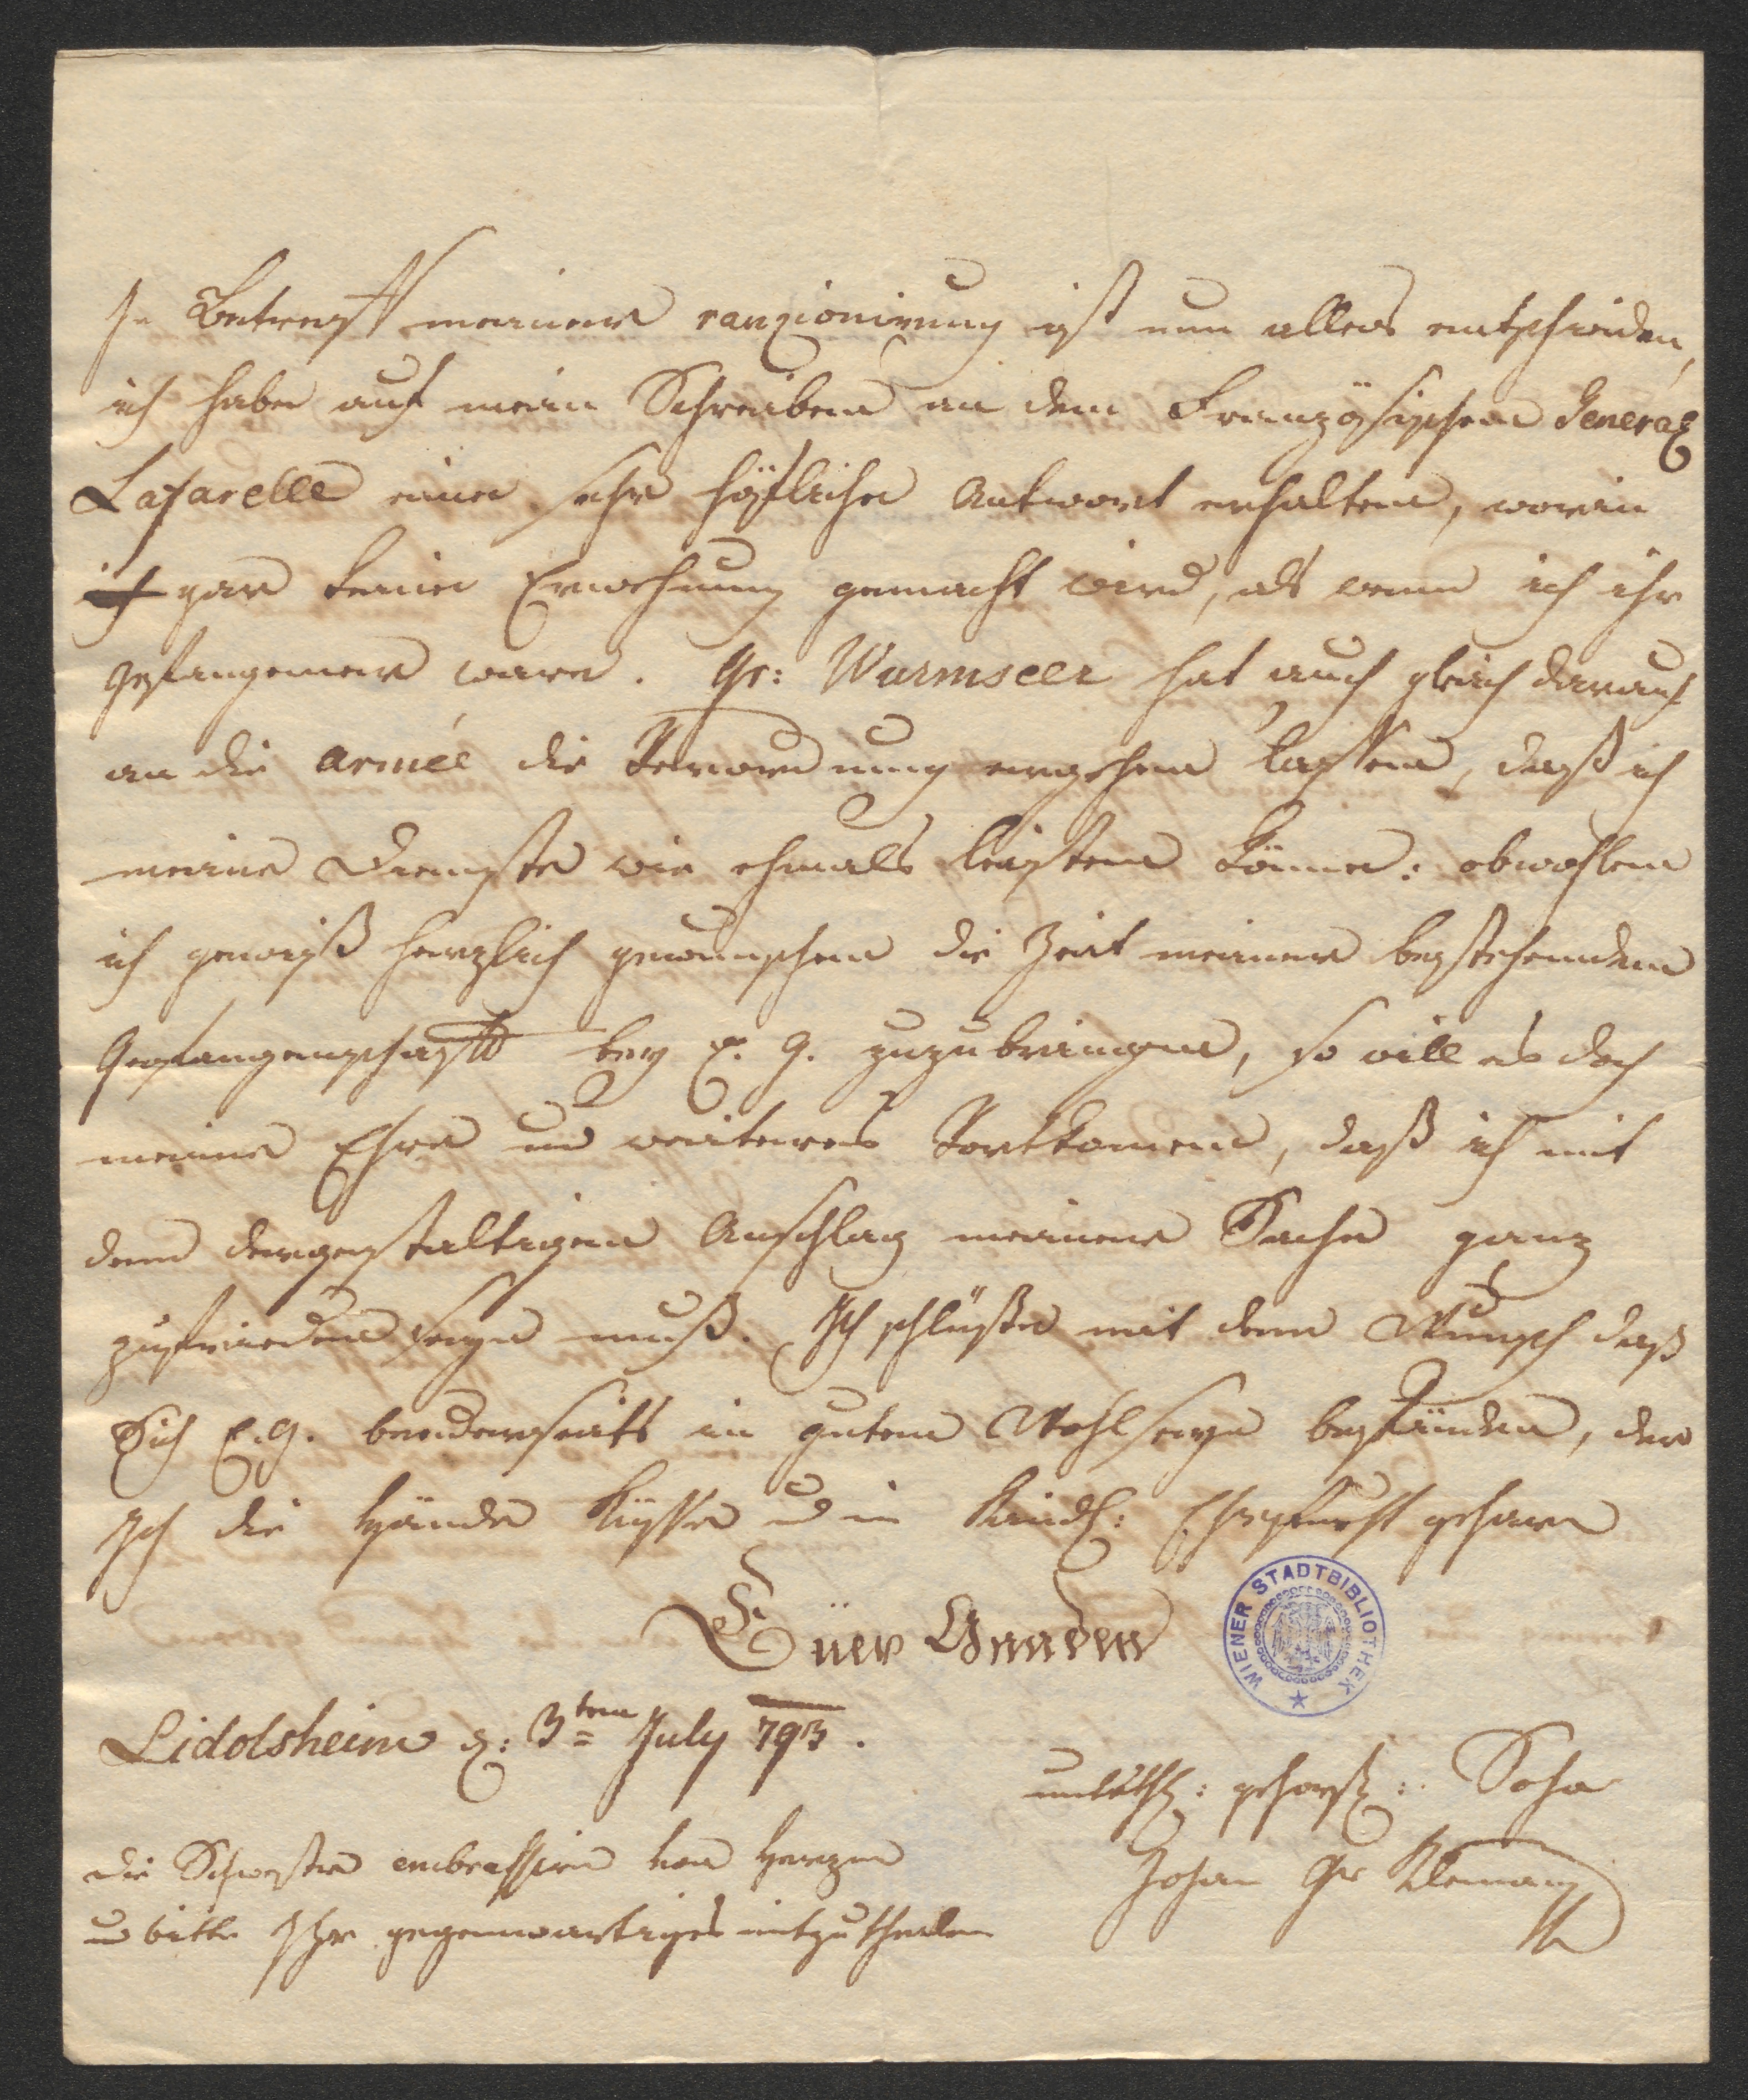 In Betreff meiner ranzionirung ist nun alles entschieden,
ich habe auf mein Schreiben an den Französischen General
Lafarelle eine sehr höfliche Antwort erhalten, worin
ich gar keine Erwehnung gemacht wird, als wenn ich ihr
gefangener ware. Gr: Wurmseer hat auch gleich darauf
an die armée die Verordnung ergehen lassen, daß ich
meine Dienste wie ehmals leisten könne: obwohlen
ich gewiß herzlich gewunschen die Zeit meiner bestehenden
Gefangenschafft bey E. G. zuzubringen, so will es doch
meine Ehre und weiteres Fortkomen, daß ich mit
dem dergestaltigen Anschlag meiner Sache ganz
zufrieden seyn muß. Ich schlüße mit dem Wunsch daß
Sich E. G. beederseits in gutem Wohlseyn befünden, der
Ich die Hände küsse u in Kindl: Ehrfurcht geharre
Euer Gnaden
WIENER STADTBIBLIOTHEK
Lidolsheim d: 3ten July 793.
gehors: Sohn
Johan Gr Klenau
die Schwester embrassire von Herzen
u bitte Ihr gegenwartiges mitzutheilen